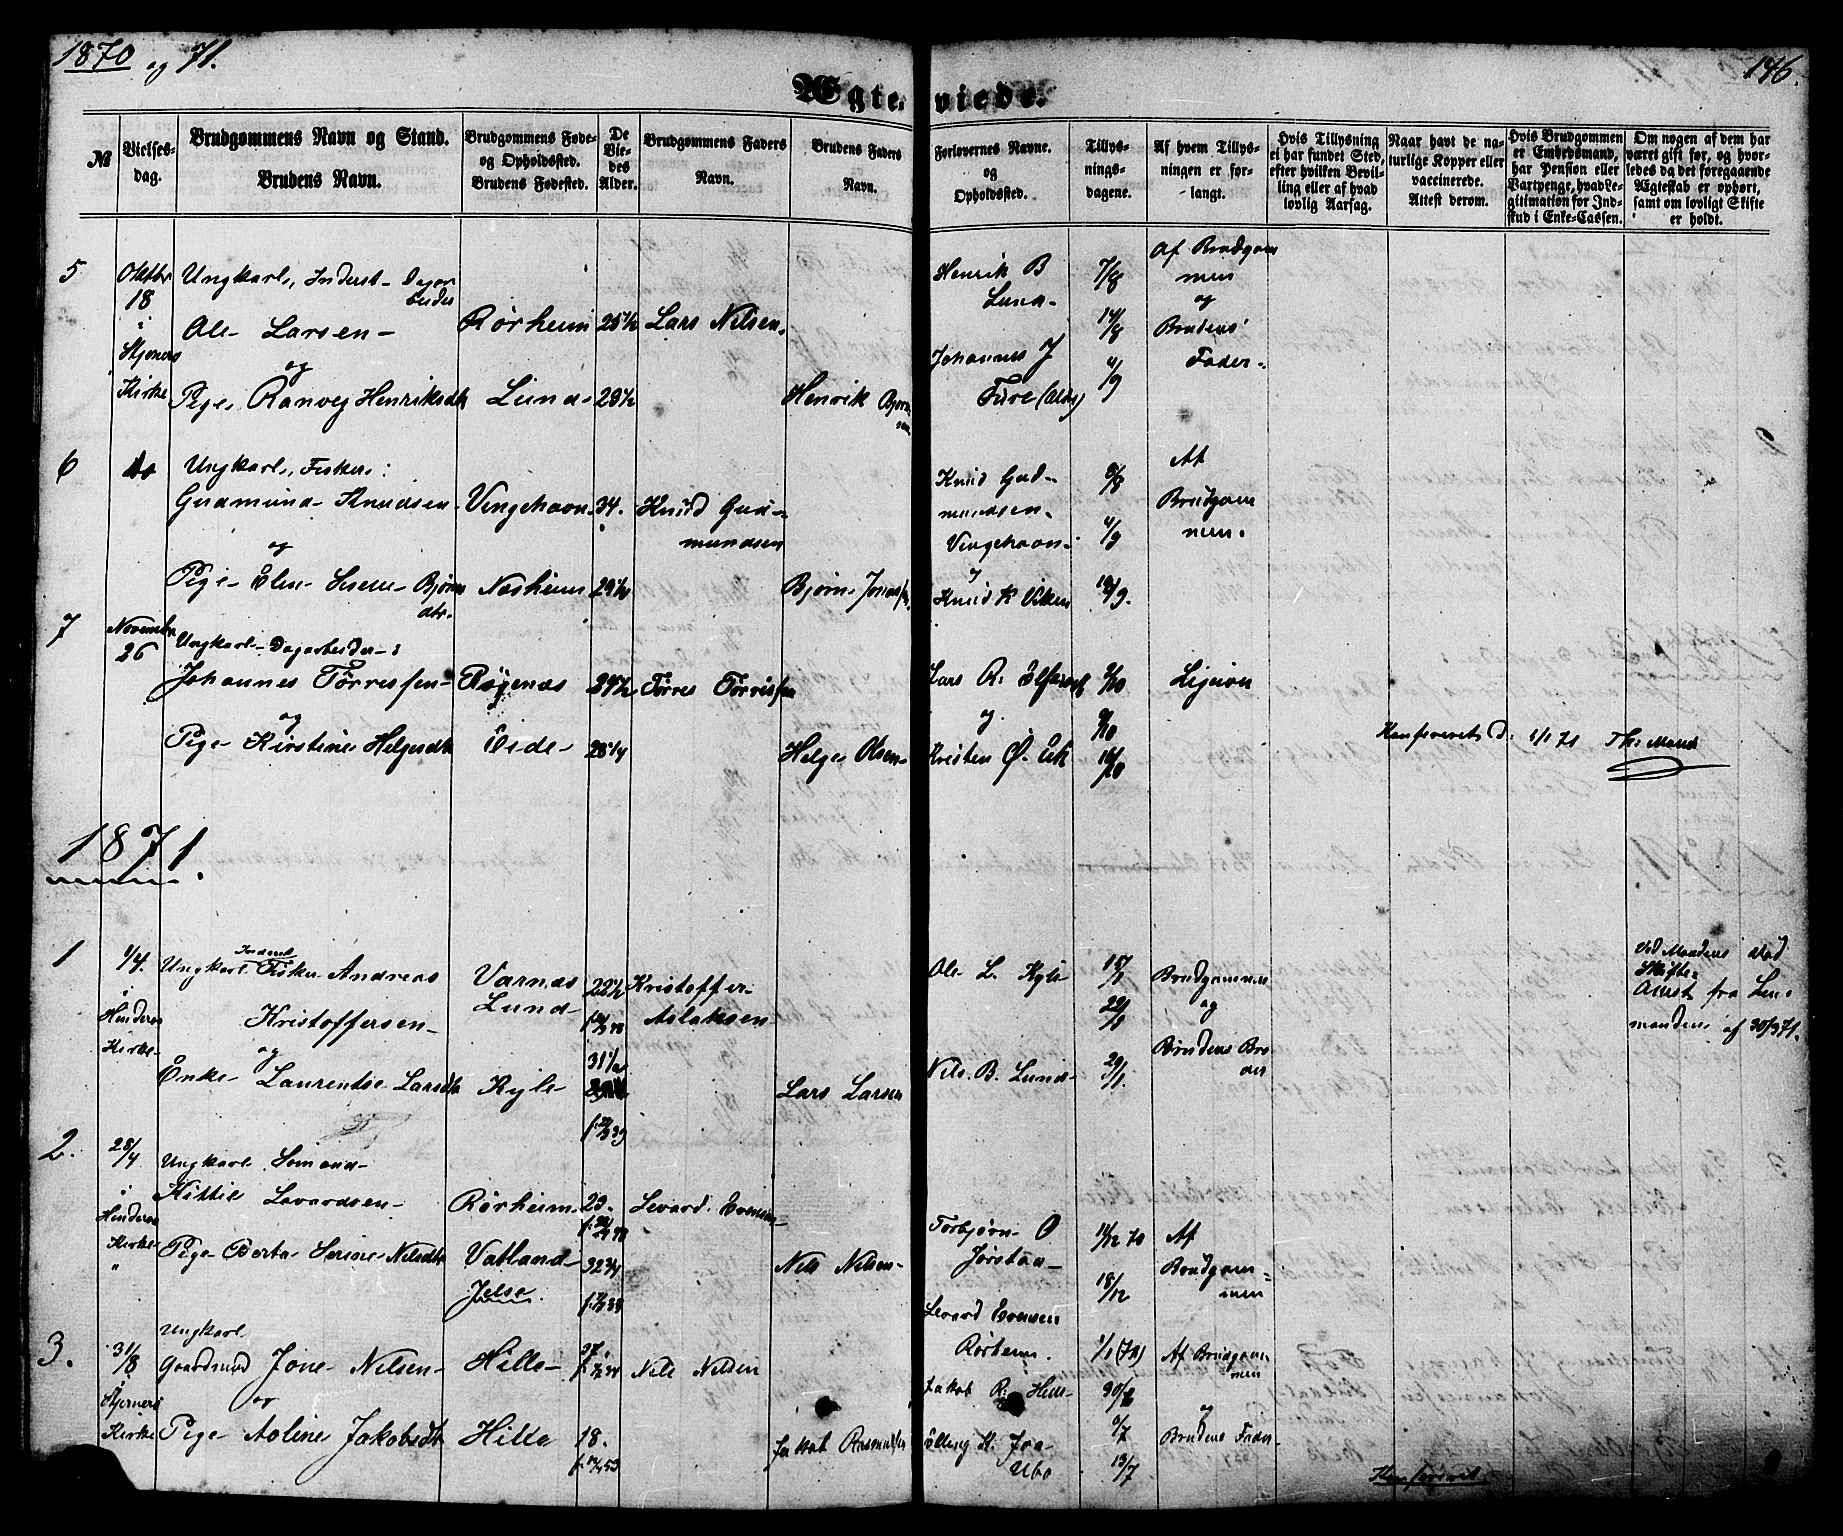 1870 og 71.
146.
Ægteviede.
№
Vielses-
dag.
Brudgommens Navn og Stand.
Brudens Navn.
Brudgommens Føde-
og Opholdssted.
Brudens Fødested.
De
Vie-
des
Alder.
Brudgommens Faders
Navn.
Brudens Faders
Navn.
Forlovernes Navne.
og
Opholdssted.
Tillys-
nings-
dagene.
Af hvem Tillys-
ningen er for-
langt.
Hvis Tillysning
ei har fundet Sted,
efter hvilken Bevil-
ling eller af hvad
lovlig Aarsag.
Naar havt de na-
turlige Kopper eller
vaccinerede.
Attest derom.
Hvis Brudgommen
er Embedsmand,
har Pension eller
Vartpenge, hvad Le-
gitimation for Ind-
skud i Enke-Cassen.
Om nogen af dem har
været gift før, og hvor-
ledes da det foregaaende
Ægteskab er ophørt,
samt om lovligt Skifte
er holdt.
5
Oktbr
18
i
Kirke
Ungkarl, Inderst
Ole Larsen
og
Pige Ranveg Henriksdtr
Rørheim
Lund
25 1/2
Lars Nilsen
Henrik Bjørn
sen
Henrik B
Lund
Johannes J
Ture
7/8
14/8
4/9
Af Brudgom
men
og
Brudens
Fader.
6
do
Ungkarl, Fisker:
Gudmund Knudsen
og
Pige Elen Serene Bjørns
dtr.
Vingehavn
Nesheim
34.
Knud Gud-
mundsen
Bjørn Jonassen
Knud Gud-
mundsen
Vingehavn
Knud K Viken
4/9
Af
Brudgom
men.
7
Novembr
26
Ungkarl Dagarbeider:
Johannes Tørresen
og
Pige Kirstine Helgesdtr
Eide
Tørres Tørresen
Helge Olsen
og
Kristen Ø. Eik
2/10
9/10
16/10
Ligesom
Konfereret d. 1/1 71
1871.
1
1/4.
i
Hinderaa
Kirke
Ungkarl Inderst Fisker Andreas
Kristoffersen
og
Enke Laurentse Larsdtr
Varnes
Lund
Kyle
22 1/2
31 1/2
Kristoffer
Aslaksen
Lars Larsen
Ole L. Kyle
Nils B. Lund
15/1
22/1
29/1
Brudgommen
og
Brudens Bro
der
Ved Mandens Død
Skifte
Attest fra Lens
manden af 30/3 71.
2.
28/4
i
Hinderaa
Kirke
Ungkarl Sømand
Kittil Lavardsen
Pige Berta Serine Nilsdtr
Rørheim
Vatland
Jelse.
23.
32 3/4
Levard Evensen
Nils Nilsen
Torbjørn O
Jørstad
Levard Evensen
Rørheim.
11/12 70
18/12
1/1 (71)
Af
Brudgom
men
3.
31/8
i
Kirke
Ungkarl
Gaardmd Jone Nilsen
og
Pige Aoline Jakobsdtr
Hille
Hille
27.
18.
Nils Nilsen
Jakob Rasmussen
Jakob R. Hille
6/7
13/7
Af Brudgom
men
og
Brudens Fader
Konfereret